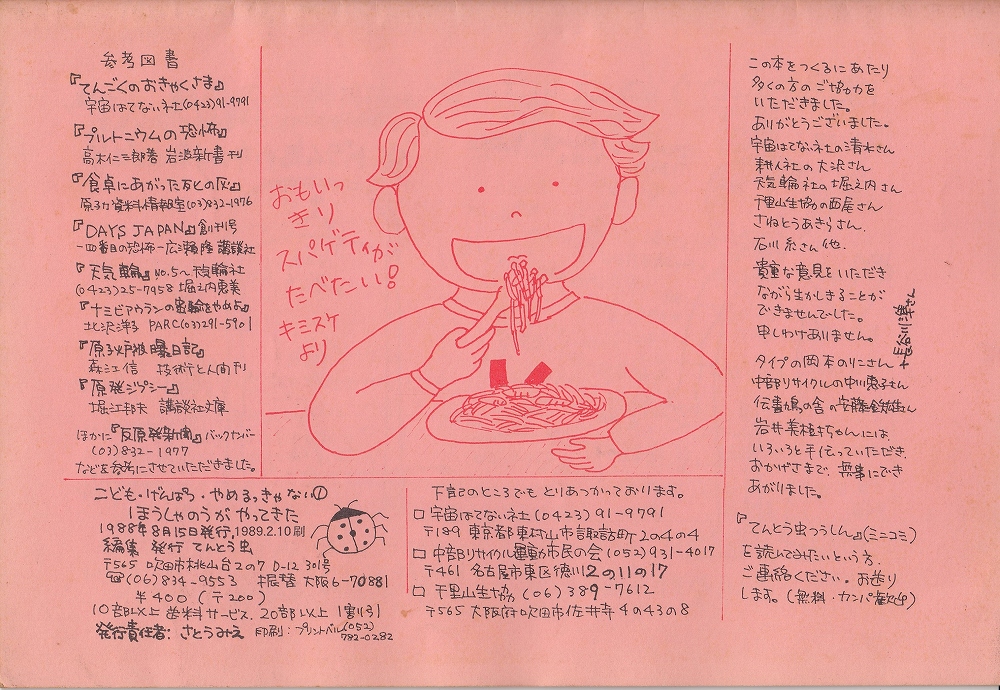 参考図書
『てんごくのおきゃくさま』
宇宙はてない社(0423)91-9791
『プルトニウムの恐怖』
高木仁三郎著 岩波新書刊
『食卓にあがった死の灰』
原子力資料情報室(03)832-1976
『DAYS JAPAN』創刊号
一四番目の恐怖一広瀬隆 講談社
『天気輪』NO.5〜 天気輪社
(0423)25-7958 堀之内恵美
『ナミビアウランの密輸をやめよ』
北沢洋子 PARC(03)291-5901
『原子炉被曝日記』
森江信 技術と人間刊
『原発ジプシー』
堀江邦夫 講談社文庫
ほかに『反原発新聞』バックナンバー
(03)832-1977
などを参考にさせていただきました。
おもいっ
きり
スパゲティが
たべたい!
キミスケ
より
この本をつくるにあたり
多くの方のご協力を
いただきました。
ありがとうございました。
宇宙はてない社の清水さん
耕人社の大沢さん
天気輪社の堀之内さん
千里山生協の西尾さん
さねとうあきらさん、
石川糸さん他.
貴重な意見をいただき
ながら生かしきることが
できませんでした。
申しわけありません。
長谷川洋さん
タイプの岡本のりこさん
中部リサイクルの中川恵子さん
伝書鳩の舎の安藤鉄雄さん
岩井美植ちゃんには、
いろいろと手伝っていただき、
おかげさまで、無事にでき
あがりました。
『てんとう虫つうしん』(ミニコミ)
を読んでみたいという方、
ご連絡ください。お送り
します。(無料・カンパ歓迎)
こども・げんぱつ・やめるっきゃない①
ほうしゃのうが やってきた
1988年8月15日発行,1989.2.10刷
編集 発行 てんとう虫
〒565 吹田市桃山台2の7 D-12 301号
☎(06)834-9553 振替 大阪6-70881
¥400(〒200)
10部以上 送料サービス. 20部以上 1割引
発行責任者: さとうみえ 印刷:プリントベル(052)
782-0282
下記のところでも とりあつかっております。
□ 宇宙はてない社(0423)91-9791
〒189 東京都東村山市諏訪町2の4の4
□ 中部リサイクル運動市民の会(052)931-4017
〒461 名古屋市東区徳川2の11の17
□ 千里山生協 (06)389-7612
〒565 大阪府吹田市佐井寺4の43の8